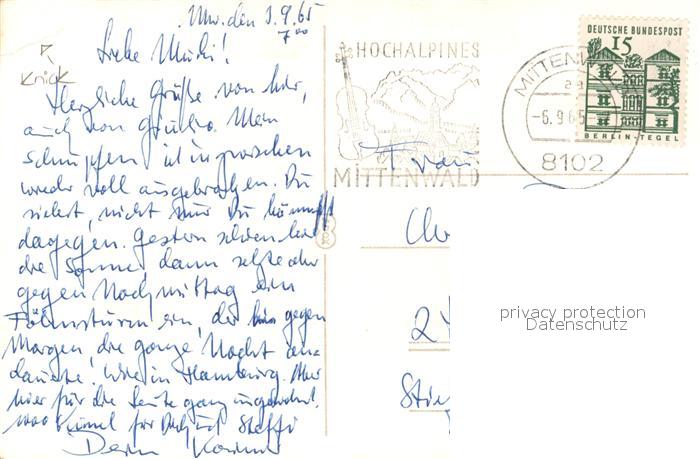 Mw. den 5.9.65
7⁰⁰
Liebe Muki!
Knick
Herzliche Grüße von hier,
auch von Mein
Schnupfen ist inzwischen
wieder voll ausgebrochen. Du
siehst, nicht nur Du kommst
dagegen. Gestern schien hier
die Sonne, dann setzte aber
gegen Nachmittag ein
Föhnsturm ein, der bis gegen
Morgen, die ganze Nacht an-
dauerte. Wie in Hamburg. Aber
hier für die Leute ganz ungewohnt.
1000 für Dich und Steffi
Dein
HOCHALPINES
MITTENWALD
MITTENW
-6.9.65
8102
DEUTSCHE BUNDESPOST
15
BERLIN-TEGEL
Frau
24
privacy protection
Datenschutz